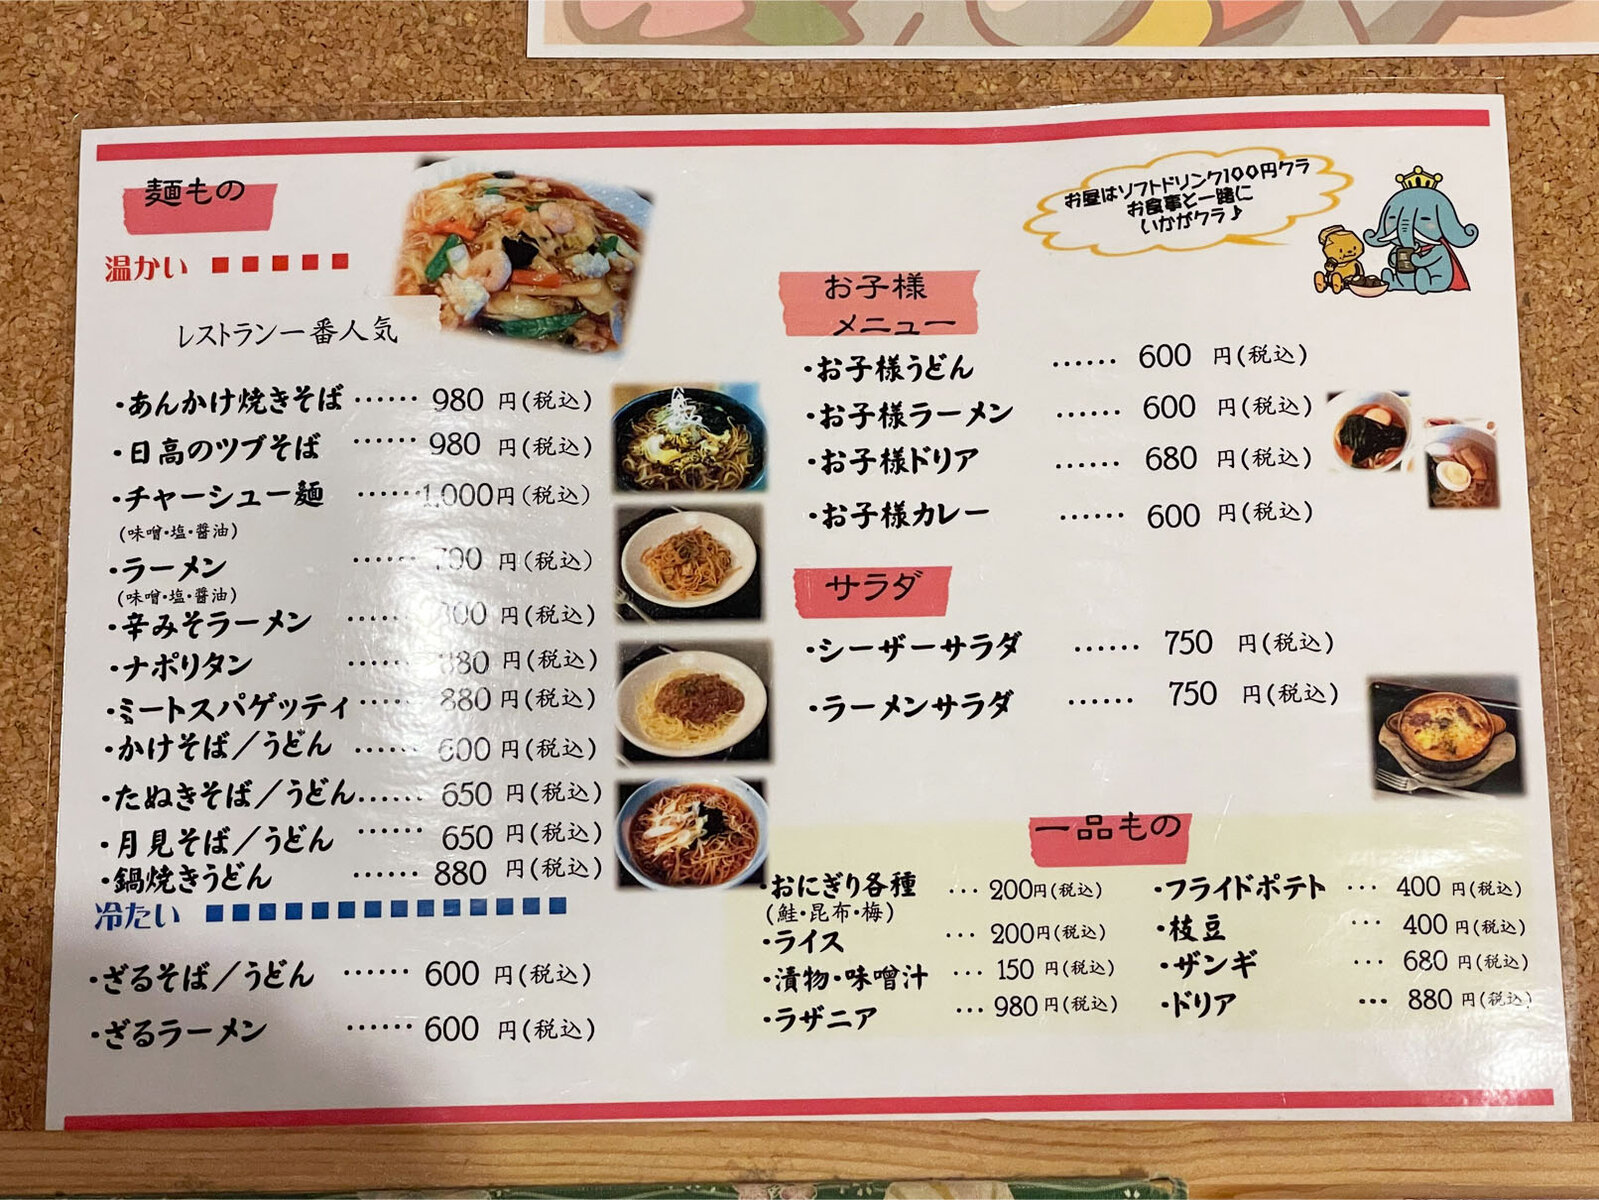 麺もの
温かい
レストラン一番人気
・あんかけ焼きそば …… 980 円(税込)
・日高のツブそば …… 980 円(税込)
・チャーシュー麺 …… 1,000円(税込)
(味噌・塩・醤油)
・ラーメン …… 円(税込)
(味噌・塩・醤油)
・辛みそラーメン …… 円(税込)
・ナポリタン …… 880 円(税込)
・ミートスパゲッティ …… 880 円(税込)
・かけそば／うどん …… 600 円(税込)
・たぬきそば／うどん …… 650 円(税込)
・月見そば／うどん …… 650 円(税込)
・鍋焼きうどん …… 880 円(税込)
冷たい
・ざるそば／うどん …… 600 円(税込)
・ざるラーメン …… 600 円(税込)
お昼はソフトドリンク100円クラ
お食事と一緒に
いかがクラ♪
お子様
メニュー
・お子様うどん …… 600 円(税込)
・お子様ラーメン …… 600 円(税込)
・お子様ドリア …… 680 円(税込)
・お子様カレー …… 600 円(税込)
サラダ
・シーザーサラダ …… 750 円(税込)
・ラーメンサラダ …… 750 円(税込)
一品もの
・おにぎり各種 … 200円(税込)
(鮭・昆布・梅)
・ライス … 200円(税込)
・漬物・味噌汁 … 150 円(税込)
・ラザニア … 980 円(税込)
・フライドポテト … 400 円(税込)
・枝豆 … 400 円(税込)
・ザンギ … 680 円(税込)
・ドリア … 880 円(税込)